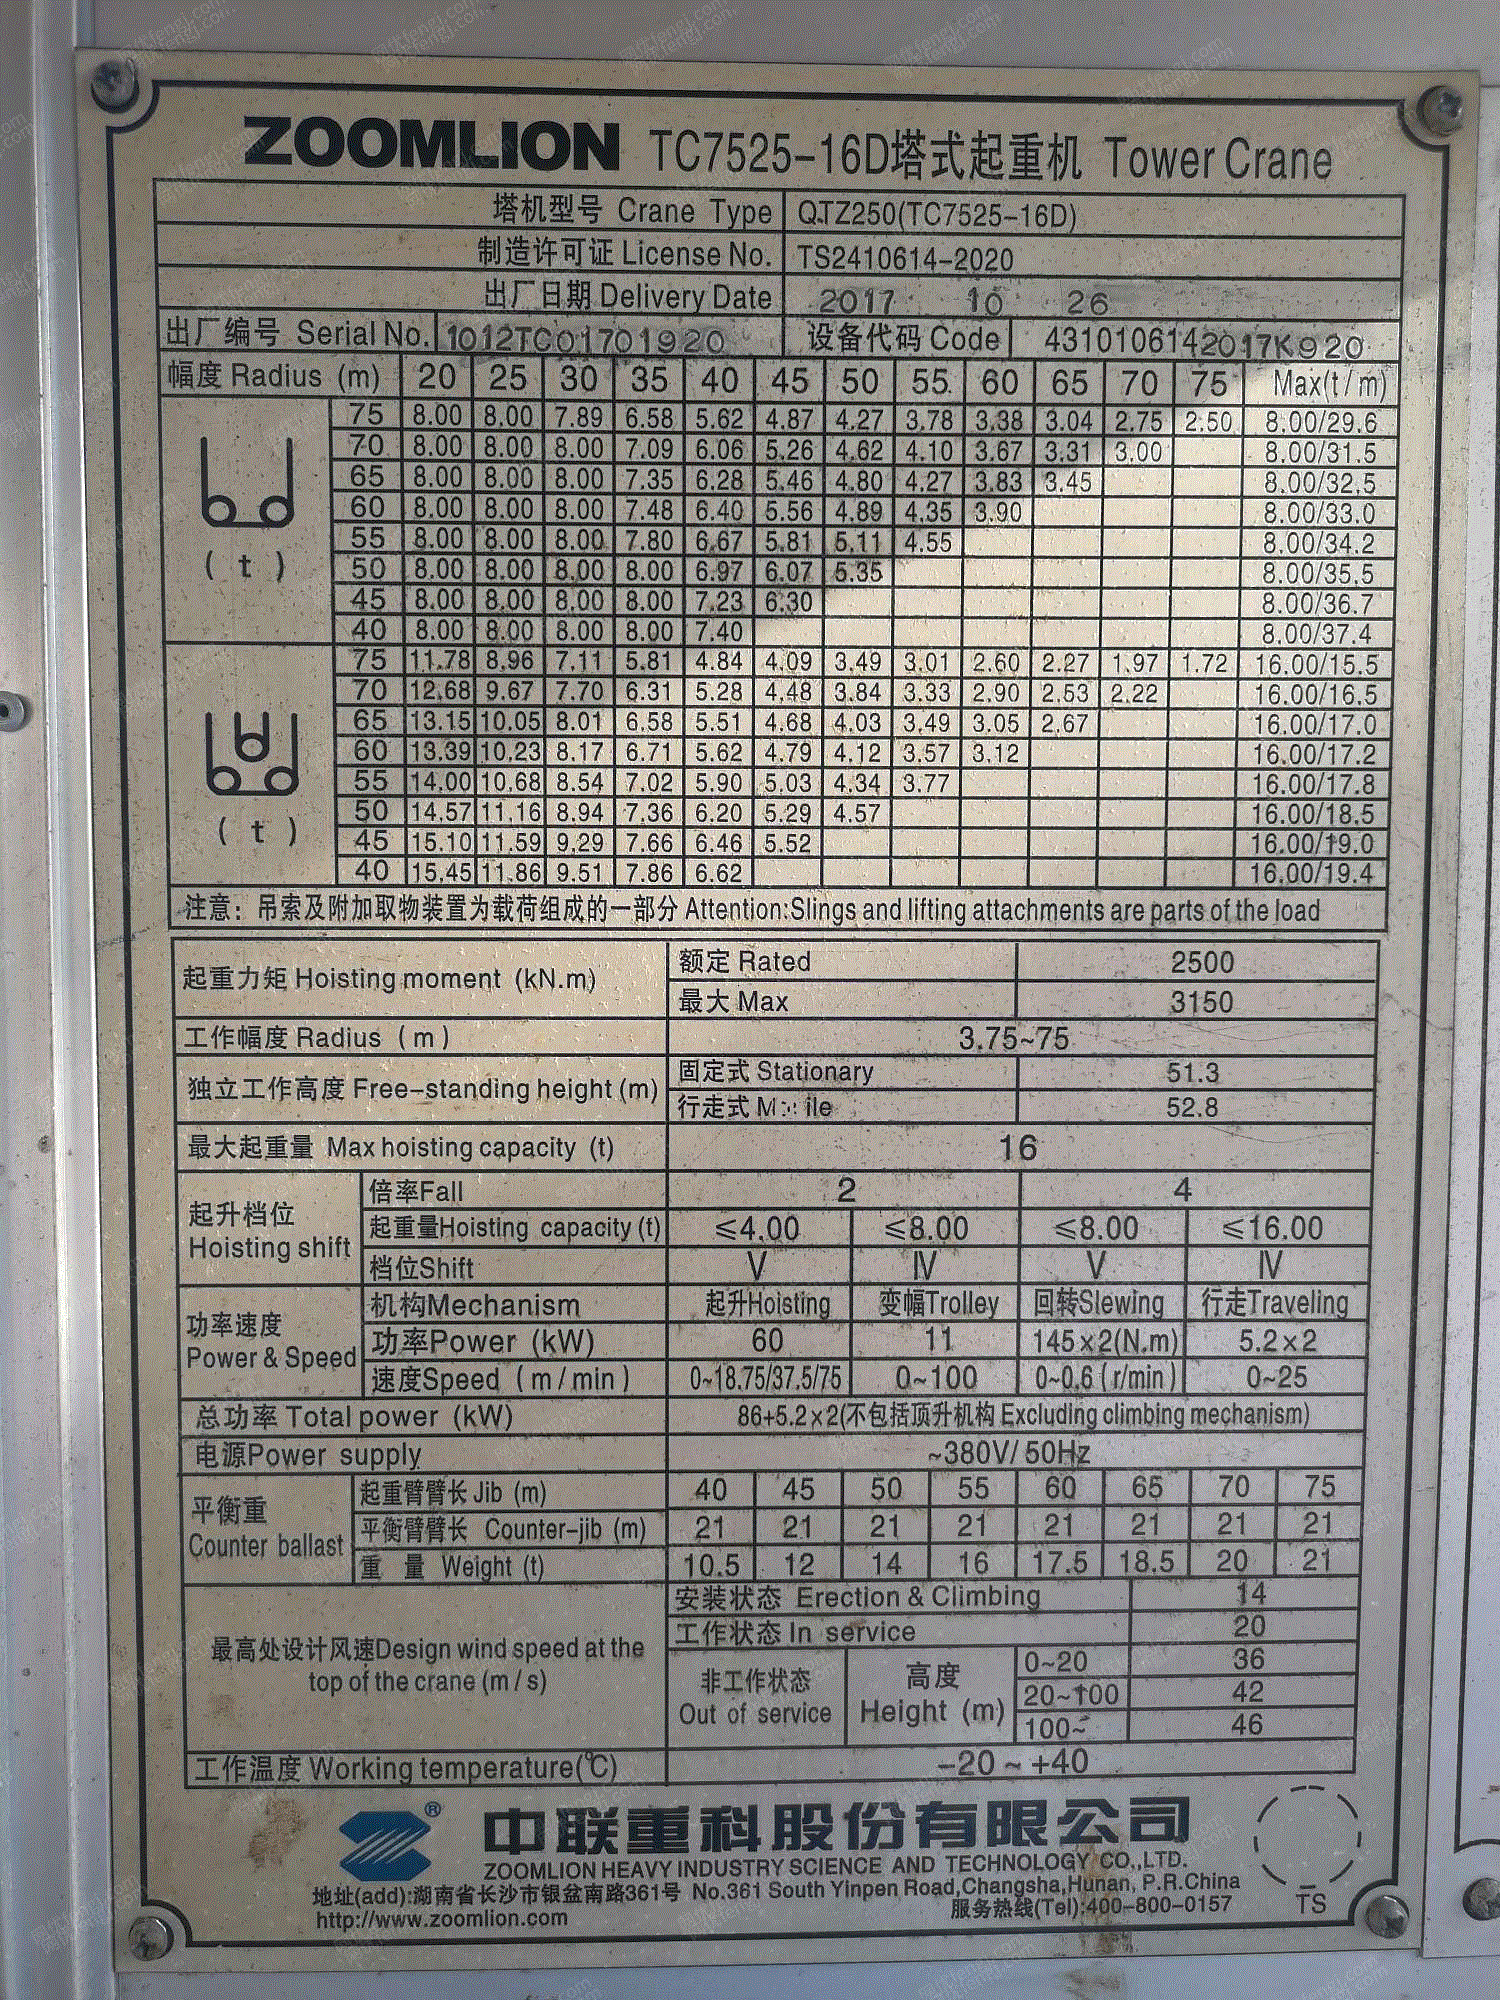 ZOOMLION TC7525-16D塔式起重机 Tower Crane
塔机型号 Crane Type QTZ250(TC7525-16D)
制造许可证 License No. TS2410614-2020
出厂日期 Delivery Date 2017 10 26
出厂编号 Serial No. 1012TC01701920 设备代码 Code 4310106142017K920
幅度 Radius (m) 20 25 30 35 40 45 50 55 60 65 70 75 Max(t/m)
75 8.00 8.00 7.89 6.58 5.62 4.87 4.27 3.78 3.38 3.04 2.75 2.50 8.00/29.6
70 8.00 8.00 8.00 7.09 6.06 5.26 4.62 4.10 3.67 3.31 3.00 8.00/31.5
65 8.00 8.00 8.00 7.35 6.28 5.46 4.80 4.27 3.83 3.45 8.00/32.5
60 8.00 8.00 8.00 7.48 6.40 5.56 4.89 4.35 3.90 8.00/33.0
55 8.00 8.00 8.00 7.80 6.67 5.81 5.11 4.55 8.00/34.2
(t)
50 8.00 8.00 8.00 8.00 6.97 6.07 5.35 8.00/35.5
45 8.00 8.00 8.00 8.00 7.23 6.30 8.00/36.7
40 8.00 8.00 8.00 8.00 7.40 8.00/37.4
75 11.78 8.96 7.11 5.81 4.84 4.09 3.49 3.01 2.60 2.27 1.97 1.72 16.00/15.5
70 12.68 9.67 7.70 6.31 5.28 4.48 3.84 3.33 2.90 2.53 2.22 16.00/16.5
65 13.15 10.05 8.01 6.58 5.51 4.68 4.03 3.49 3.05 2.67 16.00/17.0
60 13.39 10.23 8.17 6.71 5.62 4.79 4.12 3.57 3.12 16.00/17.2
55 14.00 10.68 8.54 7.02 5.90 5.03 4.34 3.77 16.00/17.8
50 14.57 11.16 8.94 7.36 6.20 5.29 4.57 16.00/18.5
(t)
45 15.10 11.59 9.29 7.66 6.46 5.52 16.00/19.0
40 15.45 11.86 9.51 7.86 6.62 16.00/19.4
注意：吊索及附加取物装置为载荷组成的一部分 Attention:Slings and lifting attachments are parts of the load
起重力矩 Hoisting moment (kN.m) 额定 Rated 2500
最大 Max 3150
工作幅度 Radius (m) 3.75~75
独立工作高度 Free-standing height (m) 固定式 Stationary 51.3
行走式 52.8
最大起重量 Max hoisting capacity (t) 16
起升档位 Hoisting shift
倍率Fall 2 4
起重量Hoisting capacity (t) ≤4.00 ≤8.00 ≤8.00 ≤16.00
档位Shift Ⅴ Ⅳ Ⅴ Ⅳ
功率速度 Power & Speed
机构Mechanism 起升Hoisting 变幅Trolley 回转Slewing 行走Traveling
功率Power (kW) 60 11 145×2(N.m) 5.2×2
速度Speed (m/min) 0~18.75/37.5/75 0~100 0~0.6 (r/min) 0~25
总功率 Total power (kW) 86+5.2×2(不包括顶升机构 Excluding climbing mechanism)
电源Power supply ~380V/ 50Hz
平衡重 Counter ballast
起重臂臂长 Jib (m) 40 45 50 55 60 65 70 75
平衡臂臂长 Counter-jib (m) 21 21 21 21 21 21 21 21
重 量 Weight (t) 10.5 12 14 16 17.5 18.5 20 21
最高处设计风速Design wind speed at the
top of the crane (m/s)
安装状态 Erection & Climbing 14
工作状态 In service 20
非工作状态 Out of service 高度 Height (m)
0~20 36
20~100 42
100~ 46
工作温度 Working temperature(℃) -20 ~ +40
® 中联重科股份有限公司
ZOOMLION HEAVY INDUSTRY SCIENCE AND TECHNOLOGY CO.,LTD.
地址(add):湖南省长沙市银盆南路361号 No.361 South Yinpen Road,Changsha,Hunan, P.R.China
http://www.zoomlion.com 服务热线(Tel):400-800-0157
TS